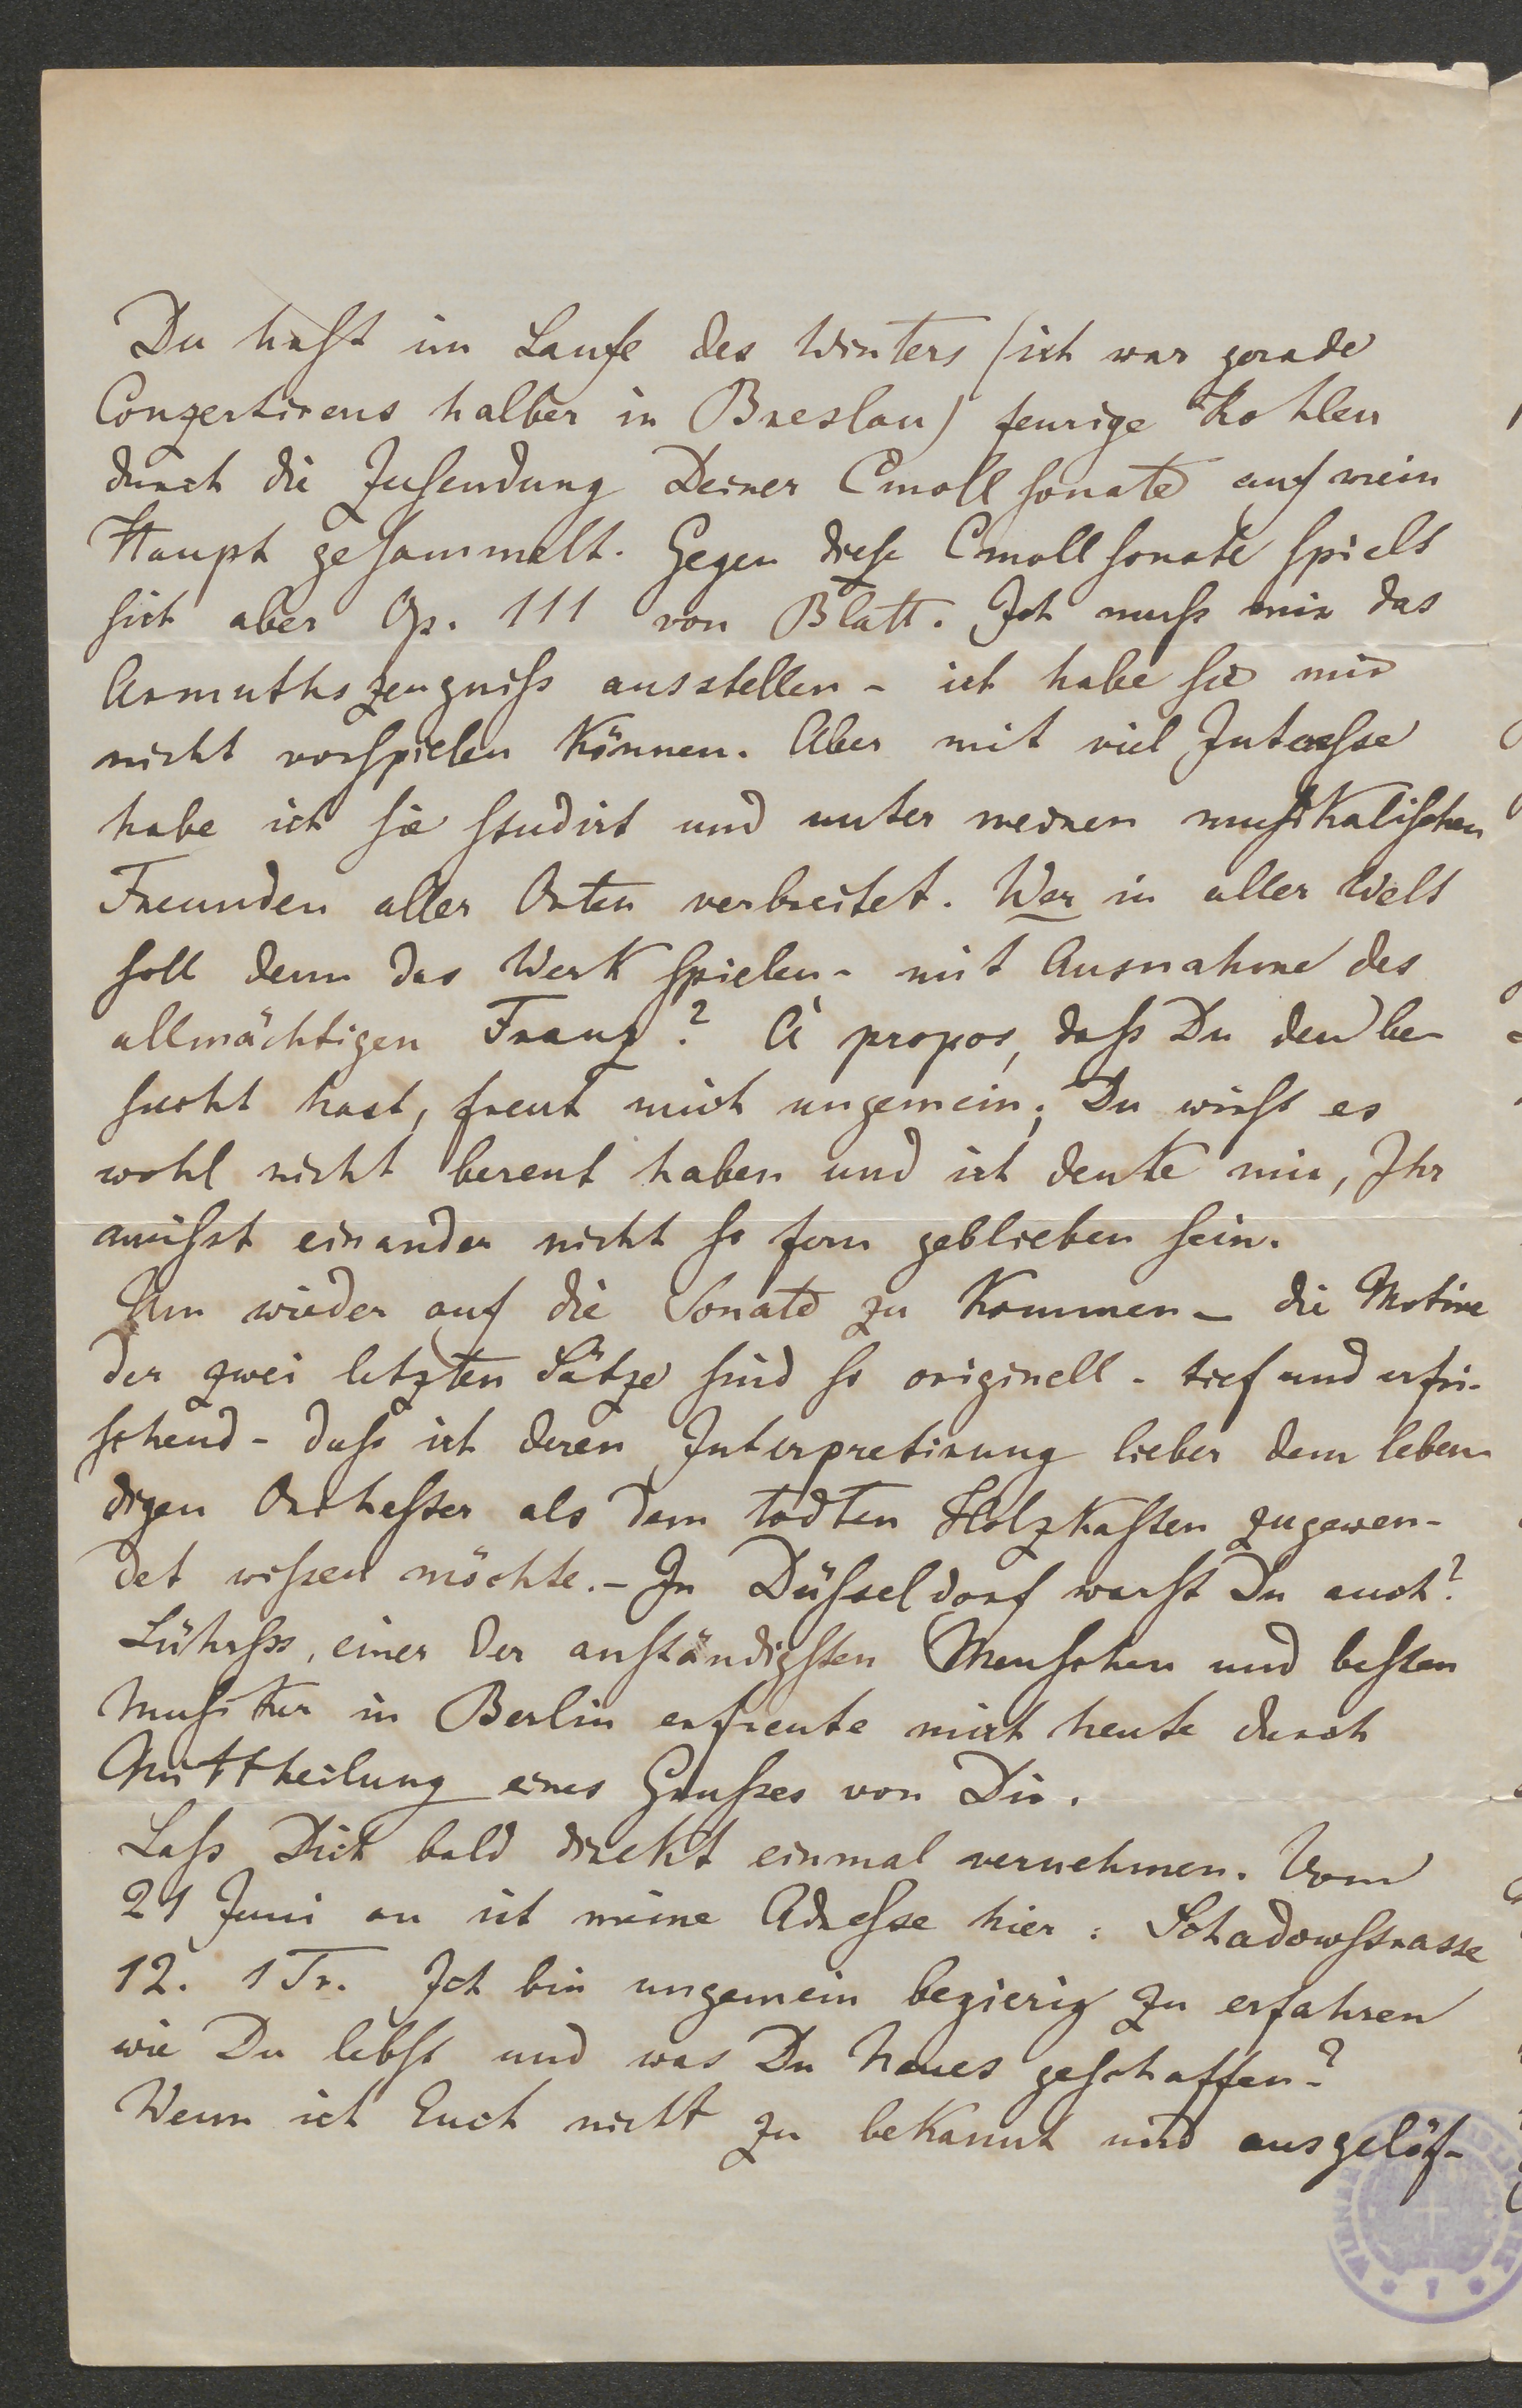 Du hast im Laufe des Winters (ich war gerade
Conzertirens halber in Breslau) feurige Kohlen
durch die Zusendung Deiner Cmoll sonate auf mein
Haupt gesammelt. Gegen diese Cmoll sonate spielt
sich aber Op. 111 von Blatt. Ich muss mir das
Armuthszeugniss ausstellen - ich habe sie mir
nicht vorspielen können. Aber mit viel Interesse
habe ich sie studirt und unter meinen musikalischen
Freunden aller Orten verbreitet. Wer in aller Welt
soll denn das Werk spielen - mit Ausnahme des
allmächtigen Franz? À propos, dass Du den be-
sucht hast, freut mich ungemein; Du wirst es
wohl nicht bereut haben und ich denke mir, Ihr
müsst einander nicht so fern geblieben sein.
Um wieder auf die Sonate zu kommen - die Motive
der zwei letzten Sätze sind so originell - tief und erfri-
schend - dass ich deren Interpretirung lieber dem leben-
digen Orchester als dem todten Holzkasten zugewen-
det wissen möchte. - In Düsseldorf warst Du auch?
Lührss, einer der anständigsten Menschen und besten
Musiker in Berlin erfreute mich heute durch
Mittheilung eines Grusses von Dir.
Lass Dich bald direkt einmal vernehmen. Vom
21 Juni an ist meine Adresse hier: Schadowstrasse
12. 1 Tr. Ich bin ungemein begierig zu erfahren
wie Du lebst und was Du Neues geschaffen?
Wenn ich Euch nicht zu bekannt und ausgelös-